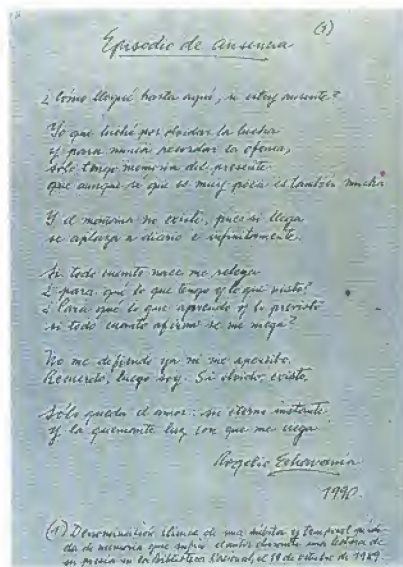 Episodio de ausencia (1)
¿Cómo llegué hasta aquí, si estoy ausente?
Yo que luché por olvidar la lucha
y para nunca recordar la ofensa,
sólo tengo memoria del presente
que aunque sé que es muy poca es también mucha
Y el mañana no existe, pues si llega
se aplaza a diario e infinitamente.
Si todo cuanto nace me relega
¿para qué lo que tengo y lo que visto?
¿Para qué lo que aprendo y lo previsto
si todo cuanto afirmo se me niega?
No me defiendo ya ni me apercibo.
Recuerdo, luego soy. Si olvido, existo.
Sólo queda el amor: su eterno instante
y la quemante luz con que me ciega
Rogelio Echavarría
1990.
(1) Denominación clínica de una súbita y temporal pérdi-
da de memoria que sufrió el autor durante una lectura de
su poesía en la Biblioteca Nacional, el 18 de octubre de 1989.